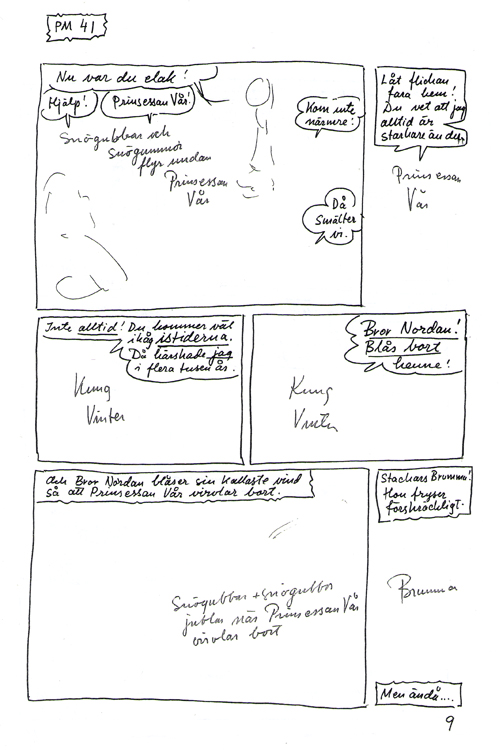 PM 41
Nu var du elak!
Hjälp!
Prinsessan Vår!
Snögubbar och
Snögummor
flyr undan
Prinsessan
Vår
Kom inte
närmere!
Då
smälter
vi.
Låt flickan
fara hem!
Du vet att jag
alltid är
starkare än du.
Prinsessan
Vår
Inte alltid! Du kommer väl
ihåg istiderna.
Då härskade jag
i flera tusen år.
Kung
Vinter
Bror Nordan!
Blås bort
henne!
Kung
Vinter
Och Bror Nordan blåser sin kallaste vind
så att Prinsessan Vår virvlar bort.
Snögubbar + snögubbor
jublar när Prinsessan Vår
virvlar bort
Stackars Brumma!
Hon fryser
förskräckligt.
Brumma
Men ändå....
9